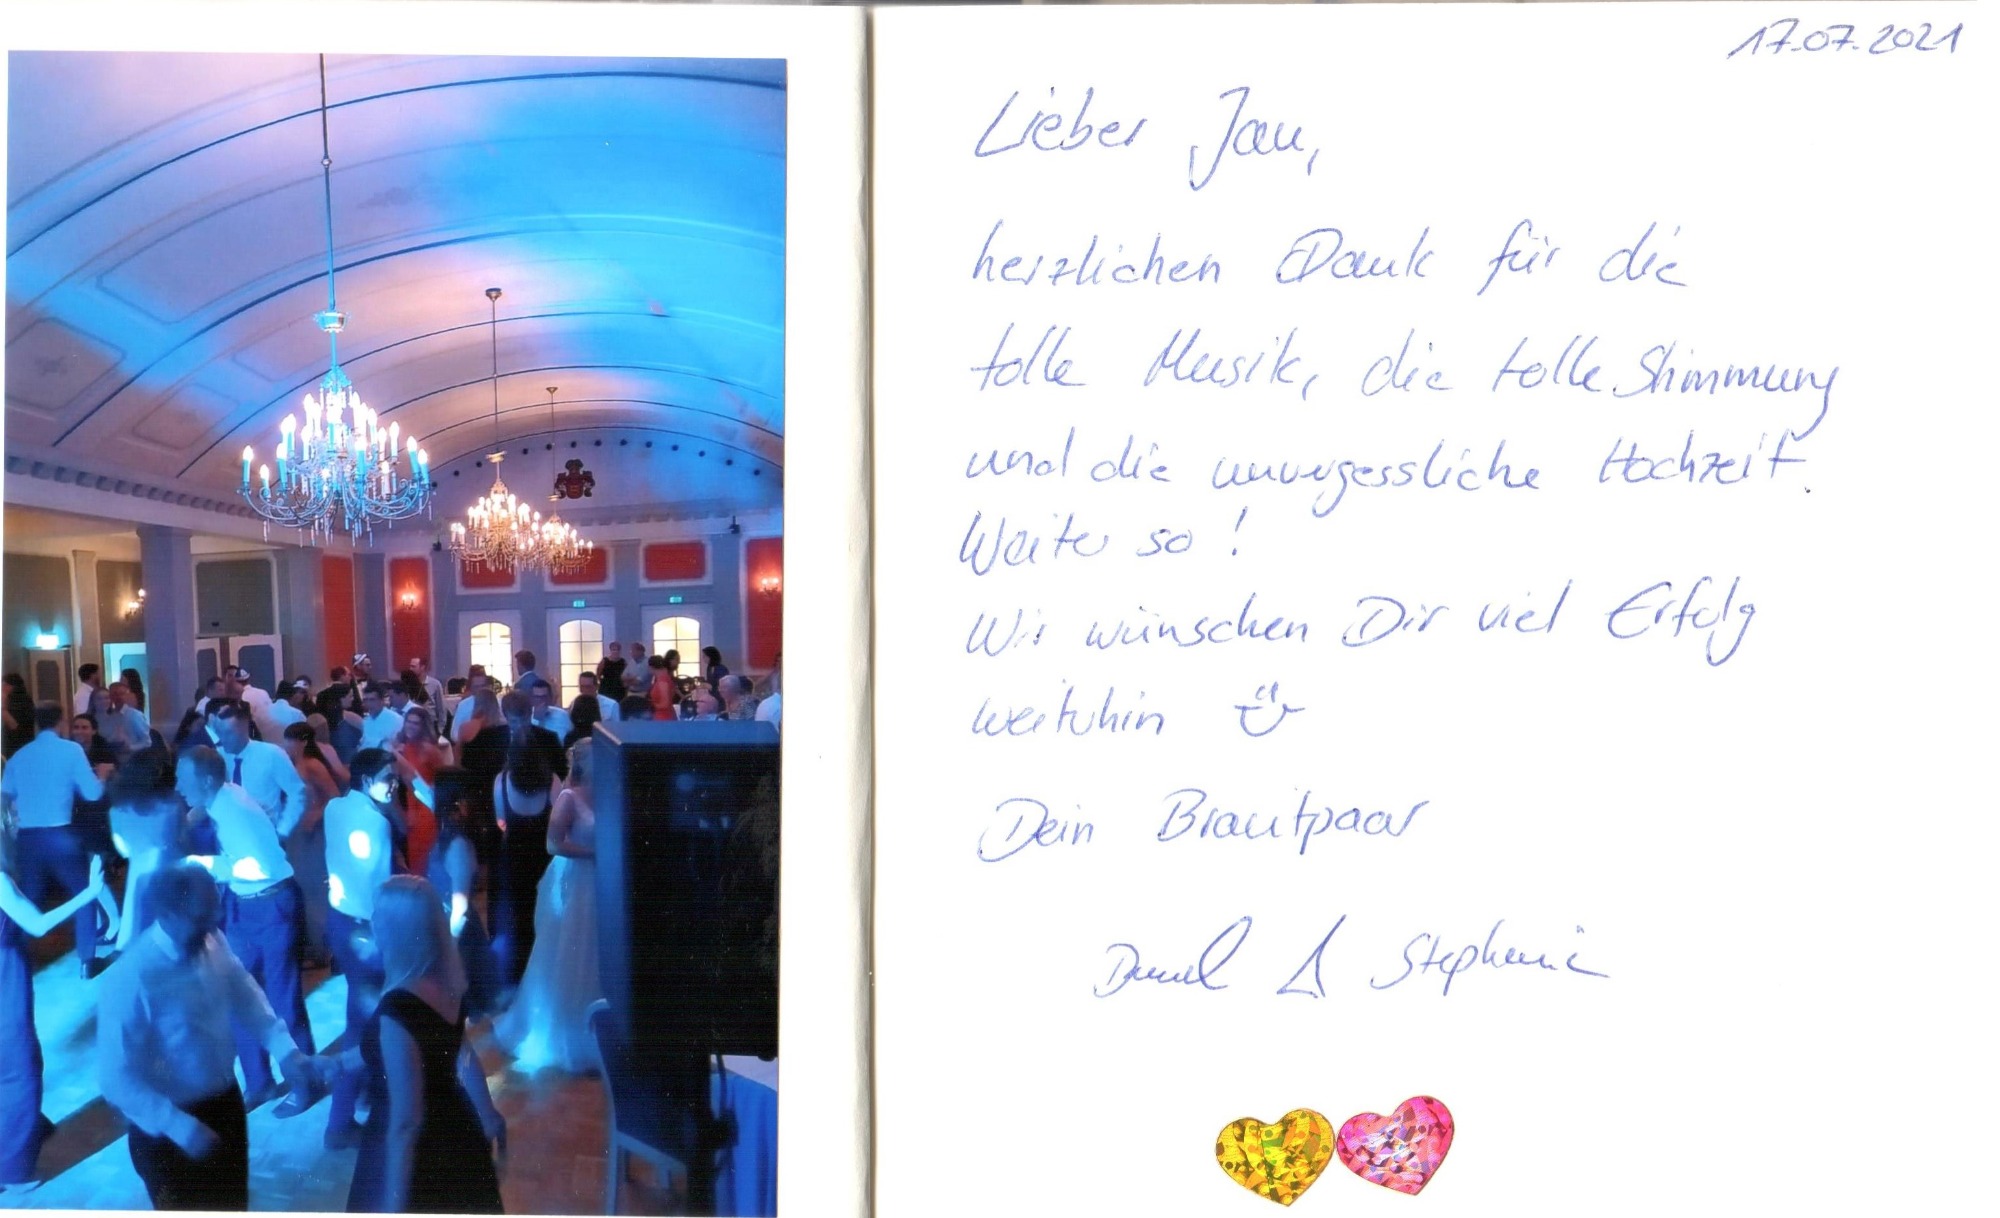 17.07.2021
Lieber Jan,
herzlichen Dank für die
tolle Musik, die tolle Stimmung
und die unvergessliche Hochzeit.
Weiter so!
Wir wünschen Dir viel Erfolg
weiterhin
Dein Brautpaar
Stephanie